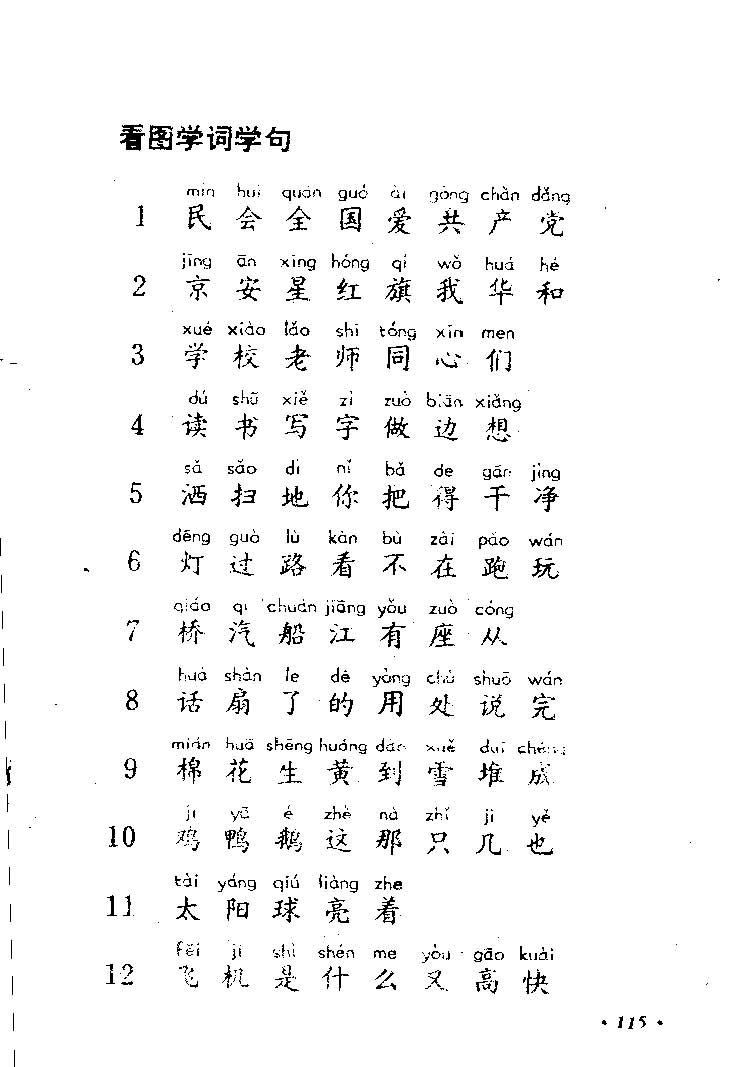 看图学词学句
mín huì quán guó ài gòng chǎn dǎng
1 民 会 全 国 爱 共 产 党
jīng ān xīng hóng qí wǒ huá hé
2 京 安 星 红 旗 我 华 和
xué xiào lǎo shī tóng xīn men
3 学 校 老 师 同 心 们
dú shū xiě zì zuò biān xiǎng
4 读 书 写 字 做 边 想
sǎ sǎo dì nǐ bǎ de gān jìng
5 洒 扫 地 你 把 得 干 净
dēng guò lù kàn bù zài pǎo wán
6 灯 过 路 看 不 在 跑 玩
qiáo qì chuán jiāng yǒu zuò cóng
7 桥 汽 船 江 有 座 从
huà shàn le de yòng chù shuō wán
8 话 扇 了 的 用 处 说 完
mián huā shēng huáng dào xuě duī chéng
9 棉 花 生 黄 到 雪 堆 成
jī yā é zhè nà zhǐ jǐ yě
10 鸡 鸭 鹅 这 那 只 几 也
tài yáng qiú liàng zhe
11 太 阳 球 亮 着
fēi jī shì shén me yòu gāo kuài
12 飞 机 是 什 么 又 高 快
· 115 ·